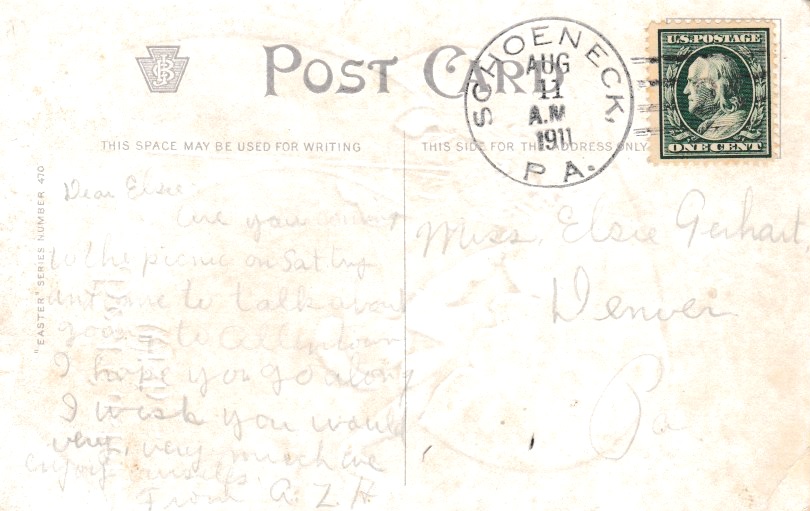 POST CARD
SCHOENECK,
AUG
11
A.M
1911
PA.
U.S. POSTAGE
ONE CENT
THIS SPACE MAY BE USED FOR WRITING
THIS SIDE FOR THE ADDRESS ONLY
"EASTER" SERIES NUMBER 470
Dear Elsie
Are you coming
to the picnic on Sat
to talk about
going to Allentown
I hope you go along
I wish you would
very, very much we
enjoy
From A. Z. H
Miss, Elsie Gerhart,
Denver
Pa